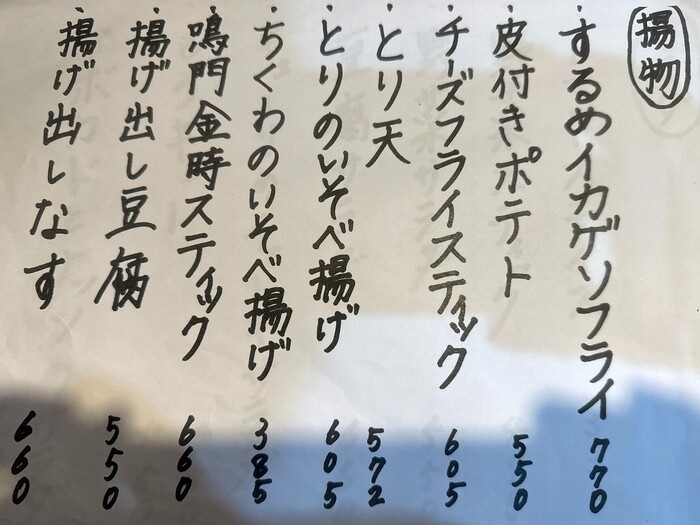 揚物
・するめイカゲソフライ 770
・皮付きポテト 550
・チーズフライスティック 605
・とり天 572
・とりのいそべ揚げ 605
・ちくわのいそべ揚げ 385
・鳴門金時スティック 660
・揚げ出し豆腐 550
・揚げ出しなす 660